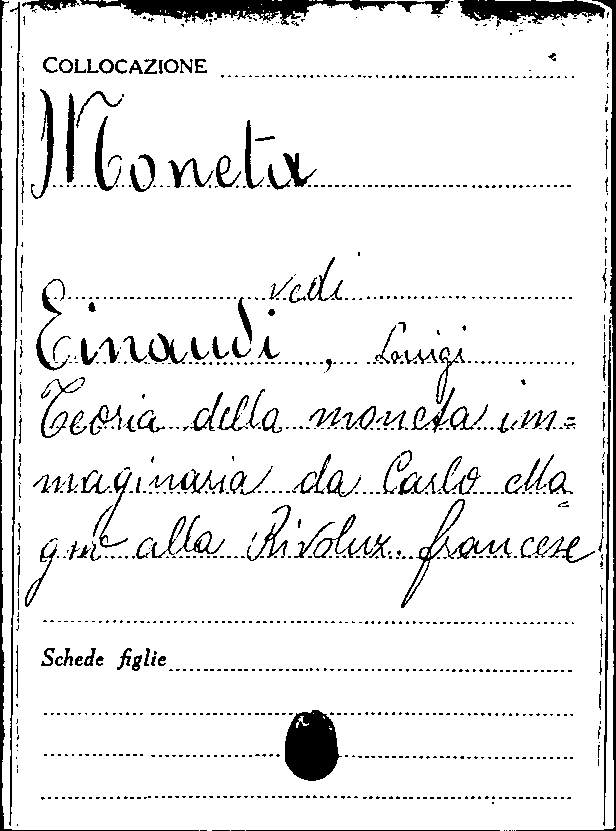 COLLOCAZIONE
Moneta
vedi
Einaudi, Luigi
Teoria della moneta im=
maginaria da Carlo Ma=
gno alla Rivoluz. francese
Schede figlie